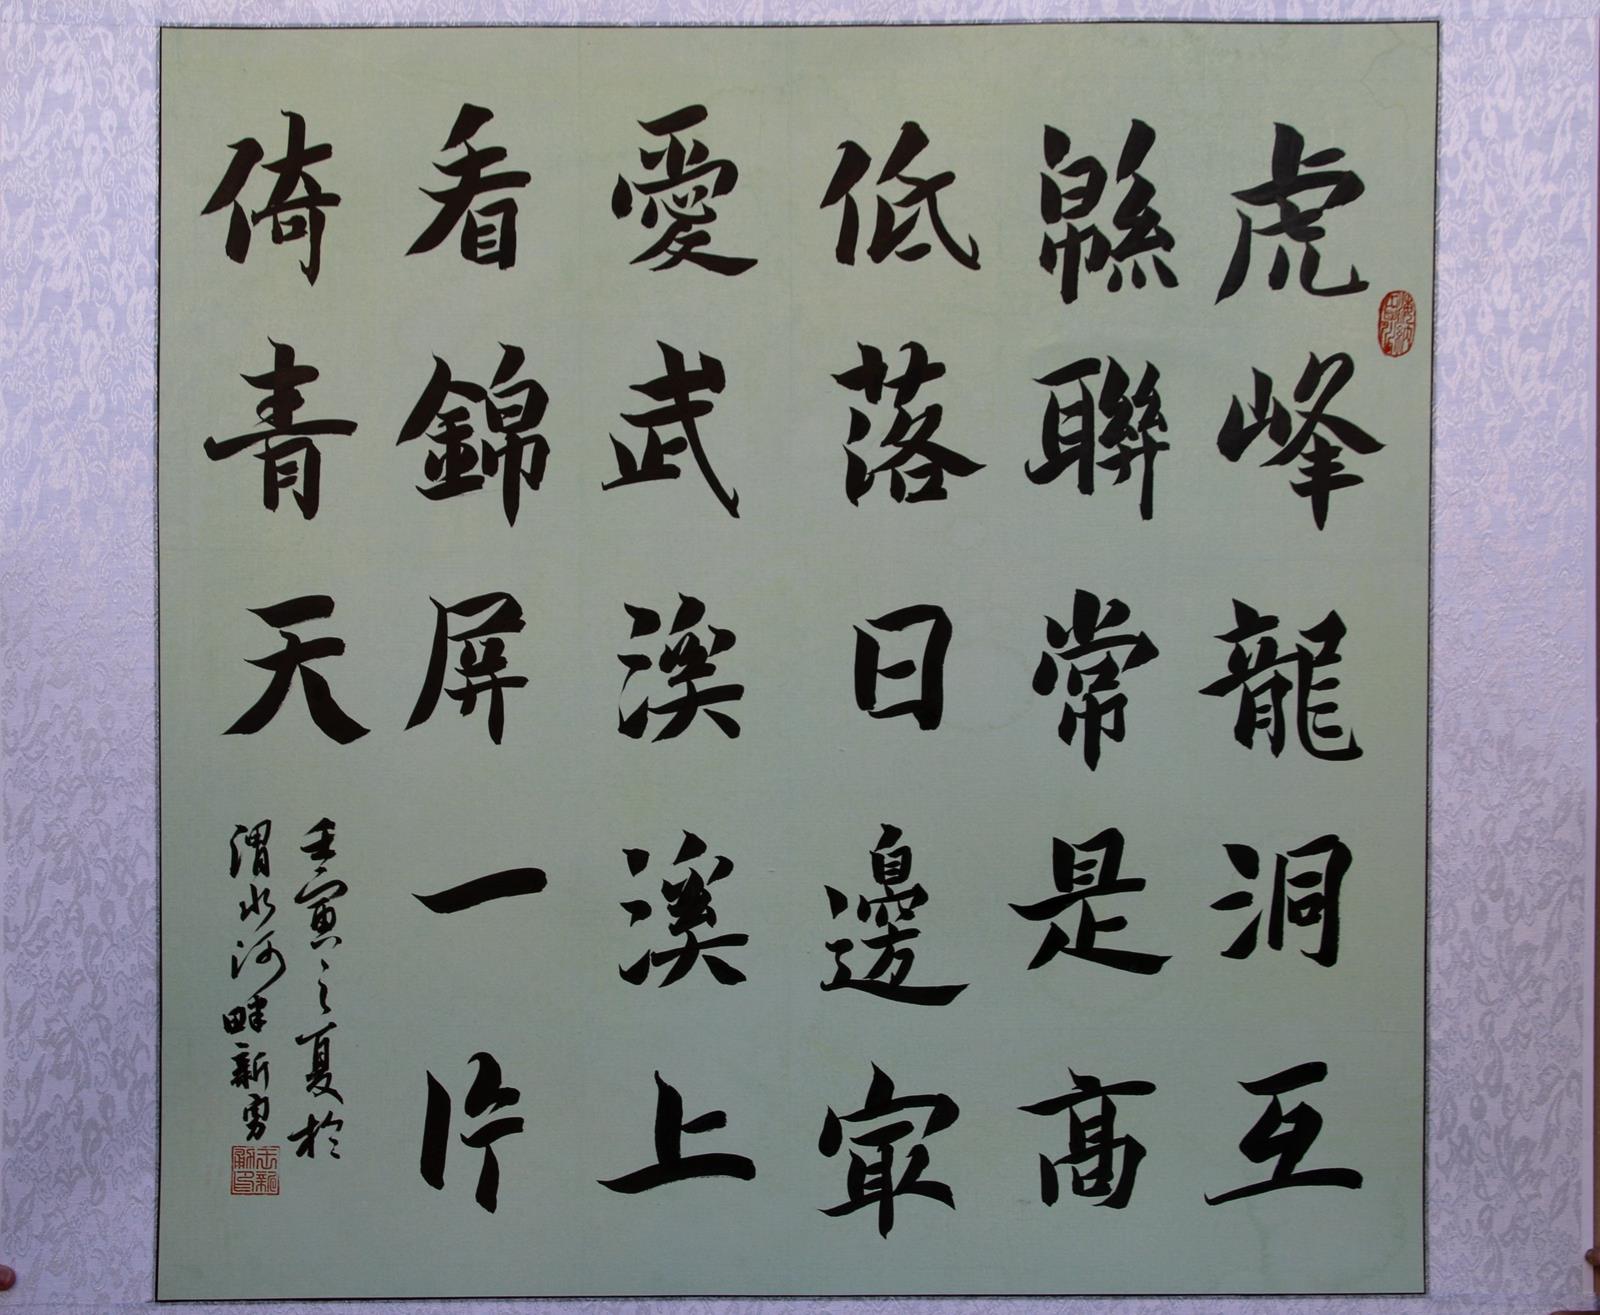 虎峰龍洞互
緜聯常是高
低落日邊冣
愛武溪溪上
看錦屏一片
倚青天
壬寅之夏於
渭水河畔新勇